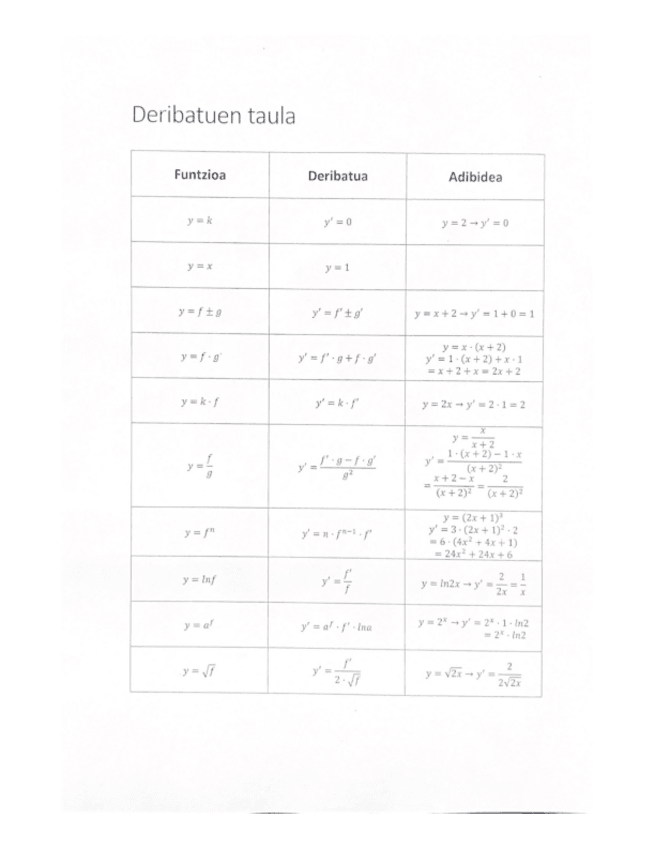 Deribatuen taula
Funtzioa Deribatua Adibidea
y = k y' = 0 y = 2 → y' = 0
y = x y = 1
y = f ± g y' = f' ± g' y = x + 2 → y' = 1 + 0 = 1
y = f · g y' = f' · g + f · g' y = x · (x + 2)
y' = 1 · (x + 2) + x · 1
= x + 2 + x = 2x + 2
y = k · f y' = k · f' y = 2x → y' = 2 · 1 = 2
y = f/g y' = (f' · g − f · g')/g² y = x/(x + 2)
y' = (1 · (x + 2) − 1 · x)/(x + 2)²
= (x + 2 − x)/(x + 2)² = 2/(x + 2)²
y = fⁿ y' = n · fⁿ⁻¹ · f' y = (2x + 1)³
y' = 3 · (2x + 1)² · 2
= 6 · (4x² + 4x + 1)
= 24x² + 24x + 6
y = lnf y' = f'/f y = ln2x → y' = 2/2x = 1/x
y = aᶠ y' = aᶠ · f' · lna y = 2ˣ → y' = 2ˣ · 1 · ln2
= 2ˣ · ln2
y = √f y' = f'/(2 · √f) y = √2x → y' = 2/(2√2x)